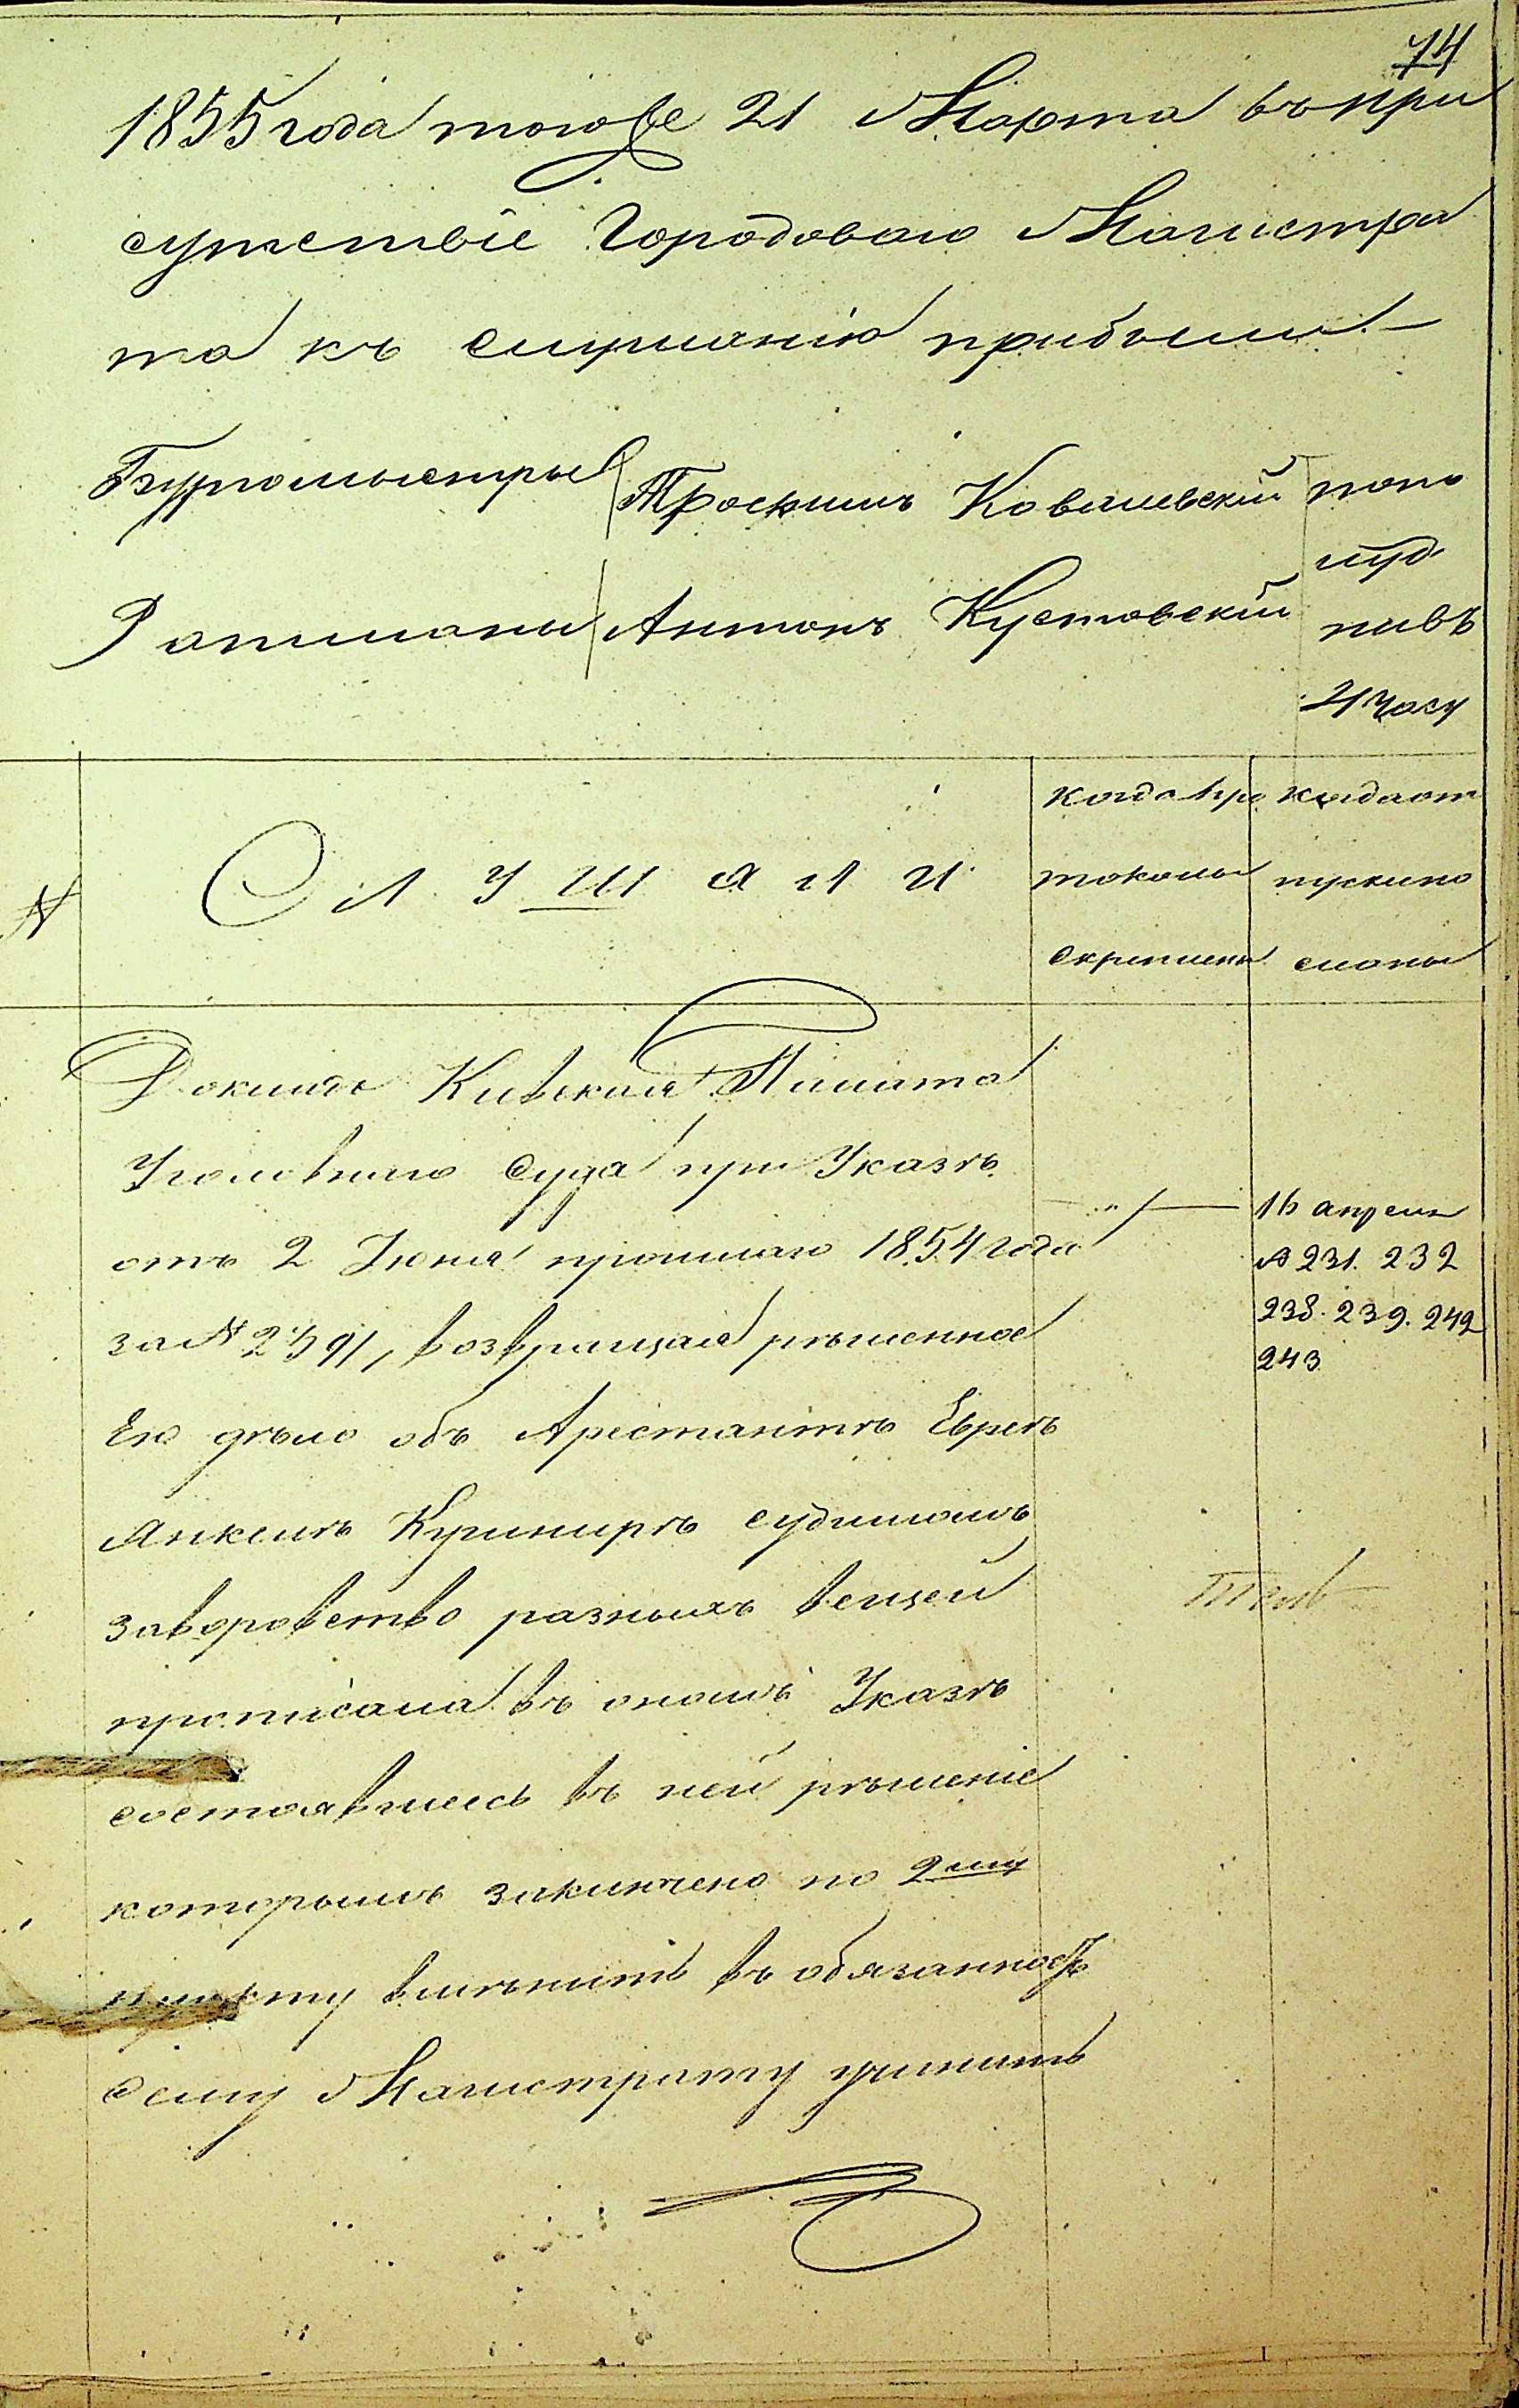 74
1855 года тогоже 21 Марта въ при
сутствіе Городоваго Магистра
та къ слушанію прибыли
Бургомистры Трофимъ Ковалевскій попо
луд
Ратманы Антонъ Кустовскій
4 часу
№ СЛУШАЛИ
когда про когда от
токолы пускъ по
скреплены сланы
Докладъ Кіевская Палата
Уголовнаго Суда при Указѣ
отъ 2 Іюня прошлаго 1854 года
за № 2591, возвращая рѣшенное
Ею дѣло объ Арестантѣ Евреѣ
Янкелѣ Кушнирѣ судимомъ
за воровство разныхъ вещей
прописала въ ономъ Указѣ
состоявшеесь въ ней рѣшеніе
которымъ заключено по 2му
пункту вмѣнить въ обязанность
сему Магистрату учинить
16 апреля
№ 231. 232
238. 239. 242
243